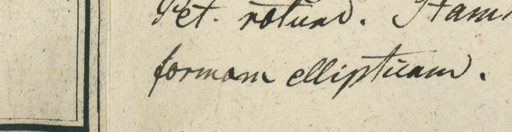 Pet. rotund. Stam
formam ellipticam.